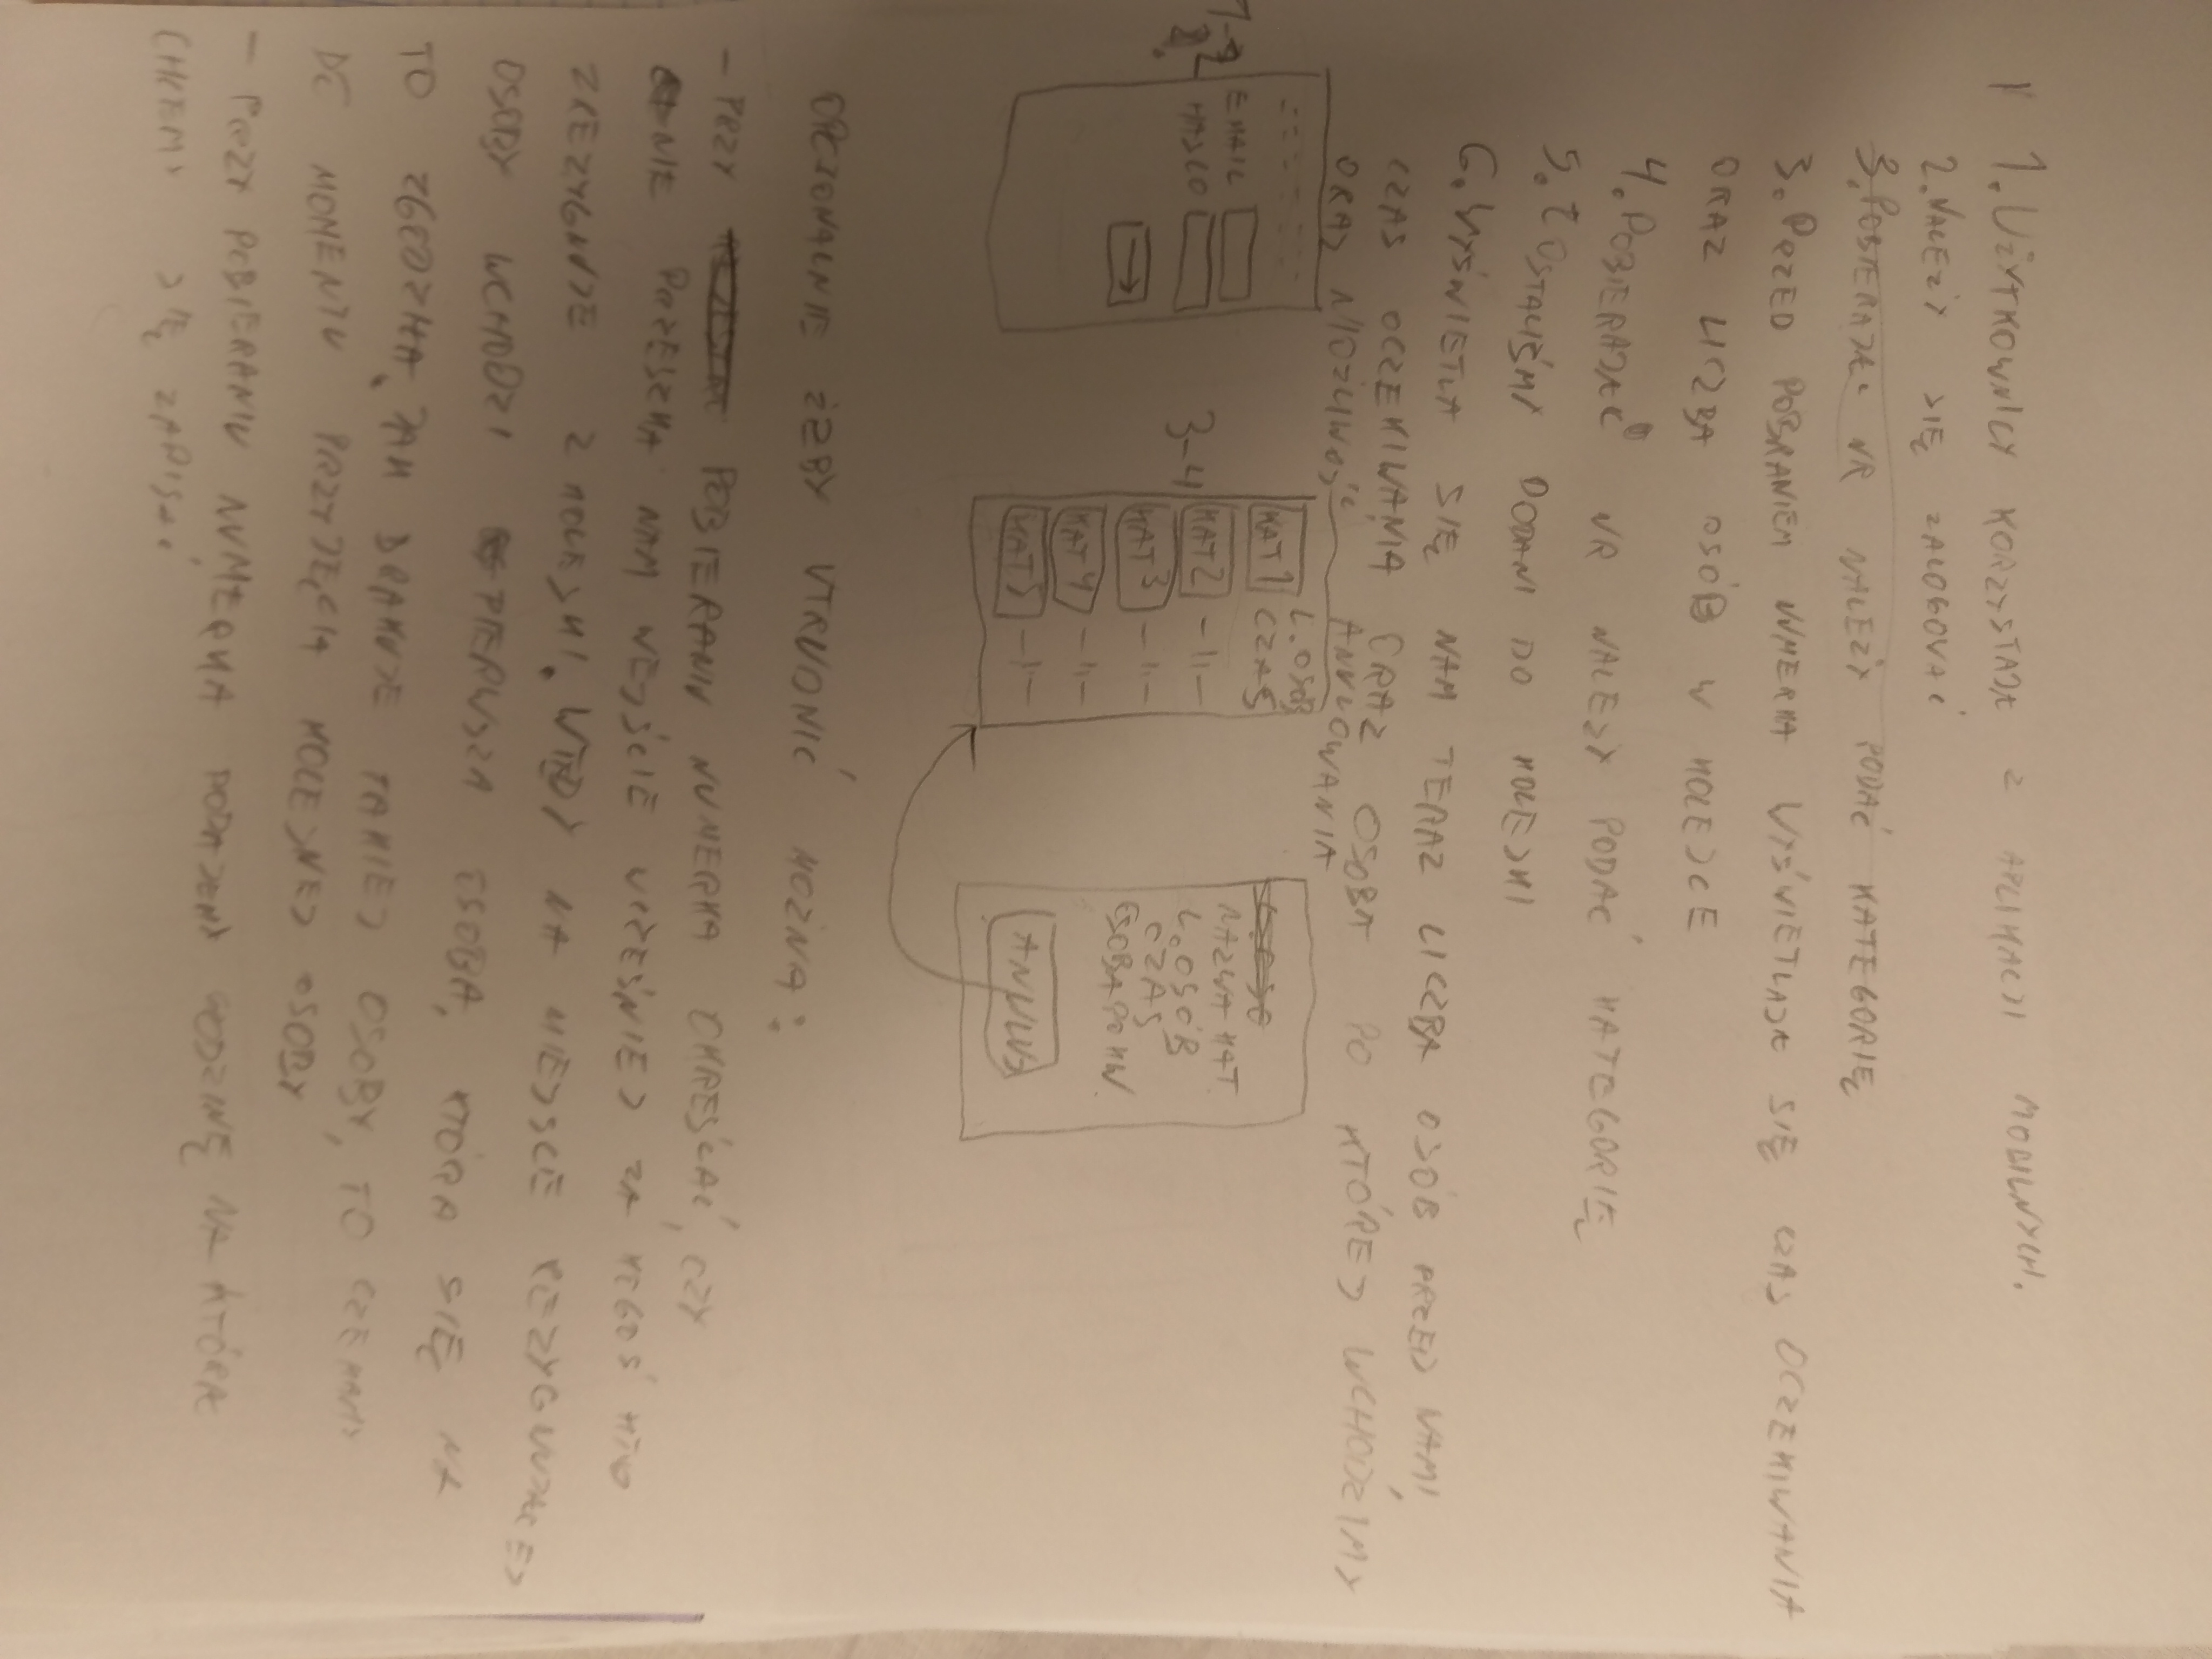 1. UŻYTKOWNICY KORZYSTAJĄ Z APLIKACJI MOBILNYCH.
2. NALEŻY SIĘ ZALOGOWAĆ
3. POBIERAJĄC NR NALEŻY PODAĆ KATEGORIĘ
3. PRZED POBRANIEM NUMERKA WYŚWIETLAJĄ SIĘ CZAS OCZEKIWANIA
ORAZ LICZBA OSÓB W KOLEJCE
4. POBIERAJĄC NR NALEŻY PODAĆ KATEGORIĘ
5. ZOSTALIŚMY DODANI DO KOLEJKI
6. WYŚWIETLA SIĘ NAM TERAZ LICZBA OSÓB PRZED NAMI,
CZAS OCZEKIWANIA ORAZ OSOBA PO KTÓREJ WCHODZIMY
ORAZ MOŻLIWOŚĆ ANULOWANIA
1-2
EMAIL
HASŁO
→
3-4
L. OSÓB
KAT1 CZAS
KAT2 -11-
KAT3 -11-
KAT4 -11-
KAT5 -11-
NAZWA KAT.
L. OSÓB
CZAS
OSOBA PO KTÓ.
ANULUJ
OPCJONALNIE ŻEBY UTRUDNIĆ MOŻNA:
- PRZY POBIERANIU NUMERKA OKREŚLAĆ, CZY
NIE PRZESZKA NAM WEJŚCIE WCZEŚNIEJ ZA KOGOŚ KTO
ZREZYGNUJE Z KOLEJKI. WTEDY NA MIEJSCE REZYGNUJĄCEJ
OSOBY WCHODZI PIERWSZA OSOBA, KTÓRA SIĘ NA
TO ZGODZIŁA. JAK BRAKUJE TAKIEJ OSOBY, TO CZEKAMY
DO MOMENTU PRZYJĘCIA KOLEJNEJ OSOBY
- PRZY POBIERANIU NUMERKA PODAJEMY GODZINĘ NA KTÓRĄ
CHCEMY SIĘ ZAPISAĆ.